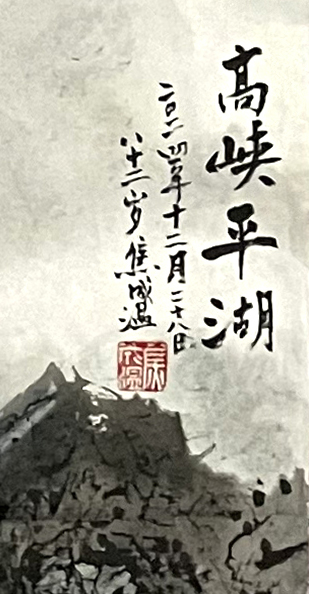 高峡平湖
二〇一四年十二月二十八日
八十二岁焦成温